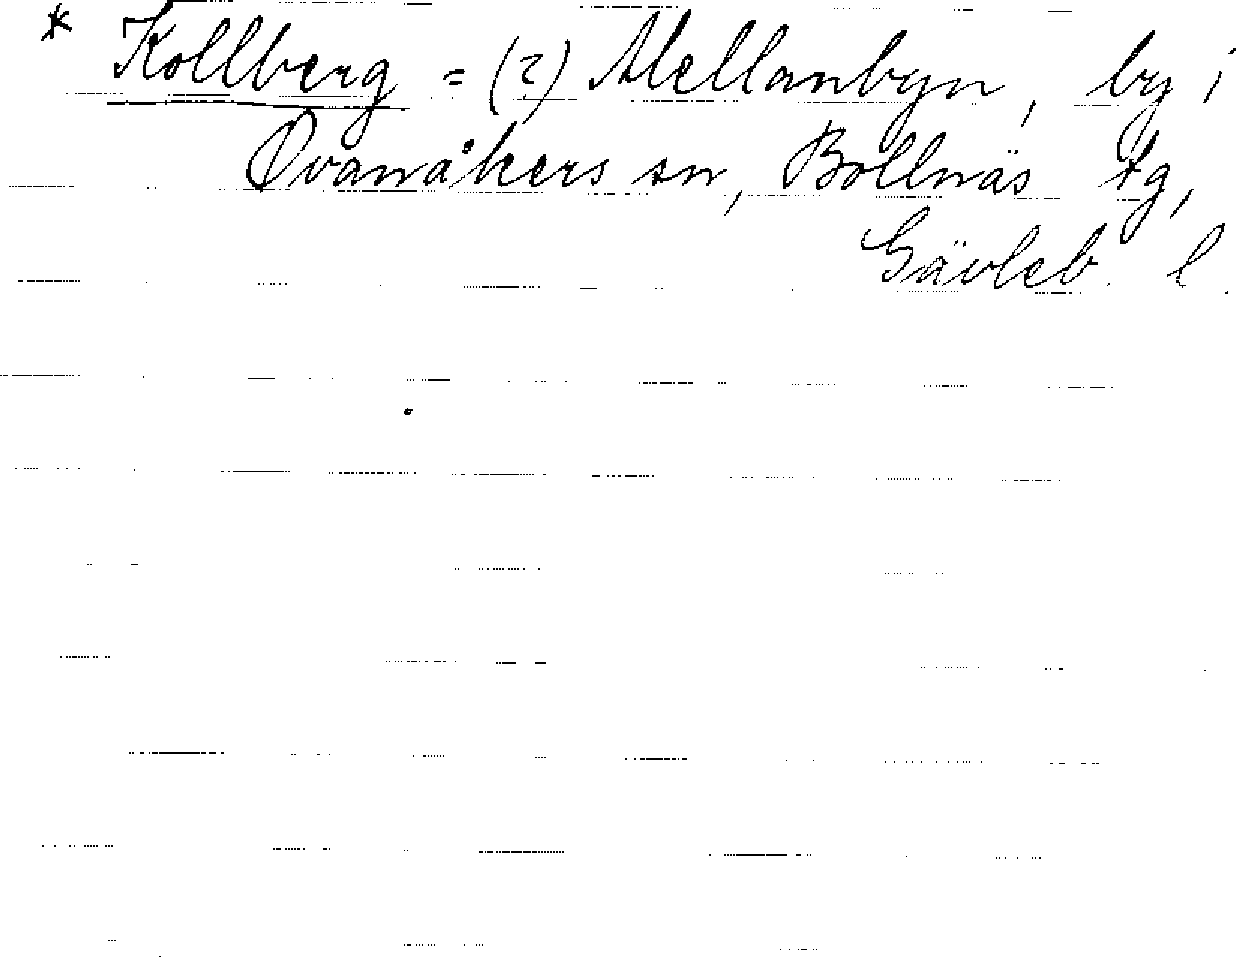 * Kollberg = (?) Mellanbyn, by i
Ovanåkers sn, Bollnäs tg,
Gävleb. l.